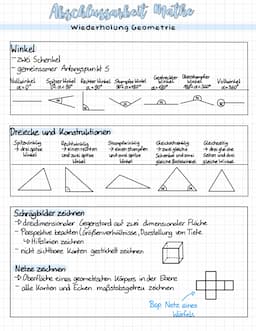 Abschlussarbeit Mathe
Wiederholung Geometrie
Winkel
- zwei Schenkel
- gemeinsamer Anfangspunkt S
Nullwinkel Spitzer Winkel Rechter Winkel Stumpfer Winkel Gestreckter Winkel Überstumpfer Winkel Vollwinkel
α=0° α=90° α=180° α=360°
Dreiecke und Konstruktionen
Spitzwinklig Rechtwinklig Stumpfwinklig Gleichschenklig Gleichseitig
→ drei spitze Winkel → einen rechten und zwei spitze Winkel → einen stumpfen und zwei spitze Winkel → zwei gleiche Schenkel und zwei gleiche Basiswinkel → drei gleiche Seiten und drei gleiche Winkel
Schrägbilder zeichnen
→ dreidimensionaler Gegenstand auf zwei dimensionaler Fläche
- Perspektive beachten (Größenverhältnisse, Darstellung von Tiefe
↳ Hilfslinien zeichnen
- nicht sichtbare Kanten gestrichelt zeichnen
Netze zeichnen
→ Oberfläche eines geometrischen Körpers in der Ebene
- alle Kanten und Ecken maßstabsgetreu zeichnen
Bsp. Netz eines
Würfels